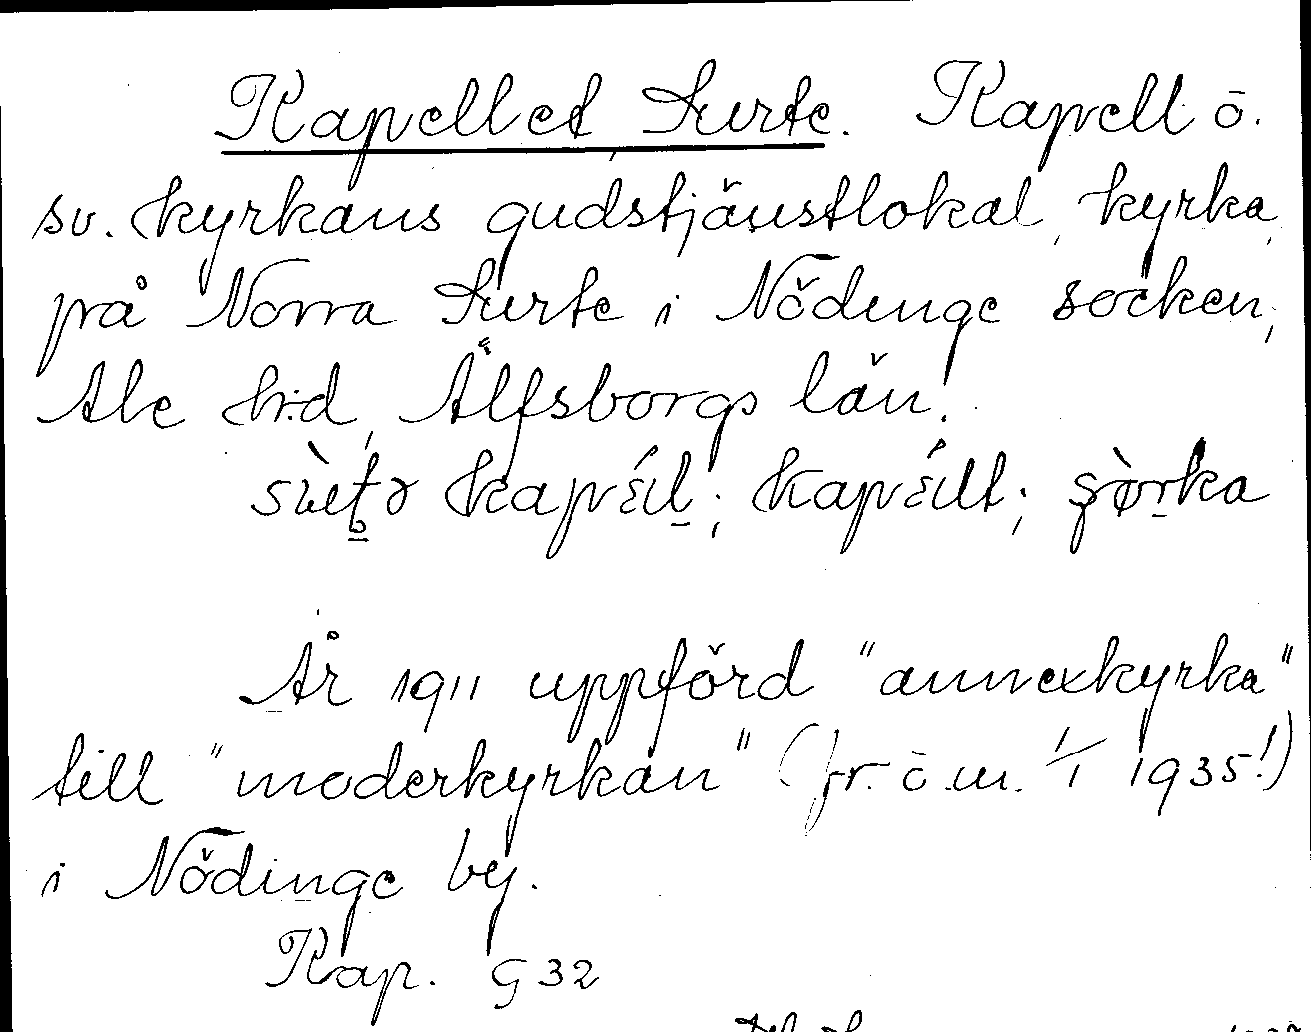 Kapellet, Surte. Kapell ō.
sv. kyrkans gudstjänstlokal, kyrka,
på Norra Surte i Nödinge socken,
Ale hrd, Älfsborgs län.
kapέl; kapέllt;
År 1911 uppförd "annexkyrka"
till "moderkyrkan" (fr. ō. m. 1/1 1935!)
i Nödinge by.
Kap. G 32